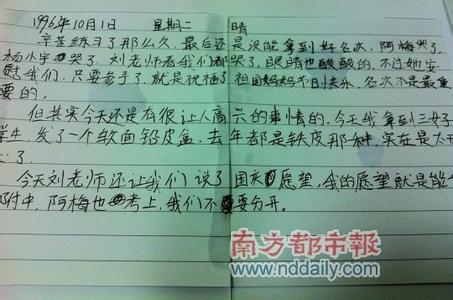 1996年10月1日 星期二 晴
辛苦练习了那么久，最后还是没能拿到好名次，阿梅哭了，
杨小宇哭了。刘老师看我们都哭了，眼睛也酸酸的，不过她安
慰我们，只要参了，就是祝福了祖国妈妈节日快乐，名次不是最重
要的。
但其实今天还是有很让人高兴的事情的。今天我拿到三好
学生，发了一个软面铅皮盒，去年都是铁皮那种，实在是太
了。
今天刘老师还让我们说了国庆愿望，我的愿望就是能
附中，阿梅也考上，我们不要分开。
南方都市報
www.nddaily.com